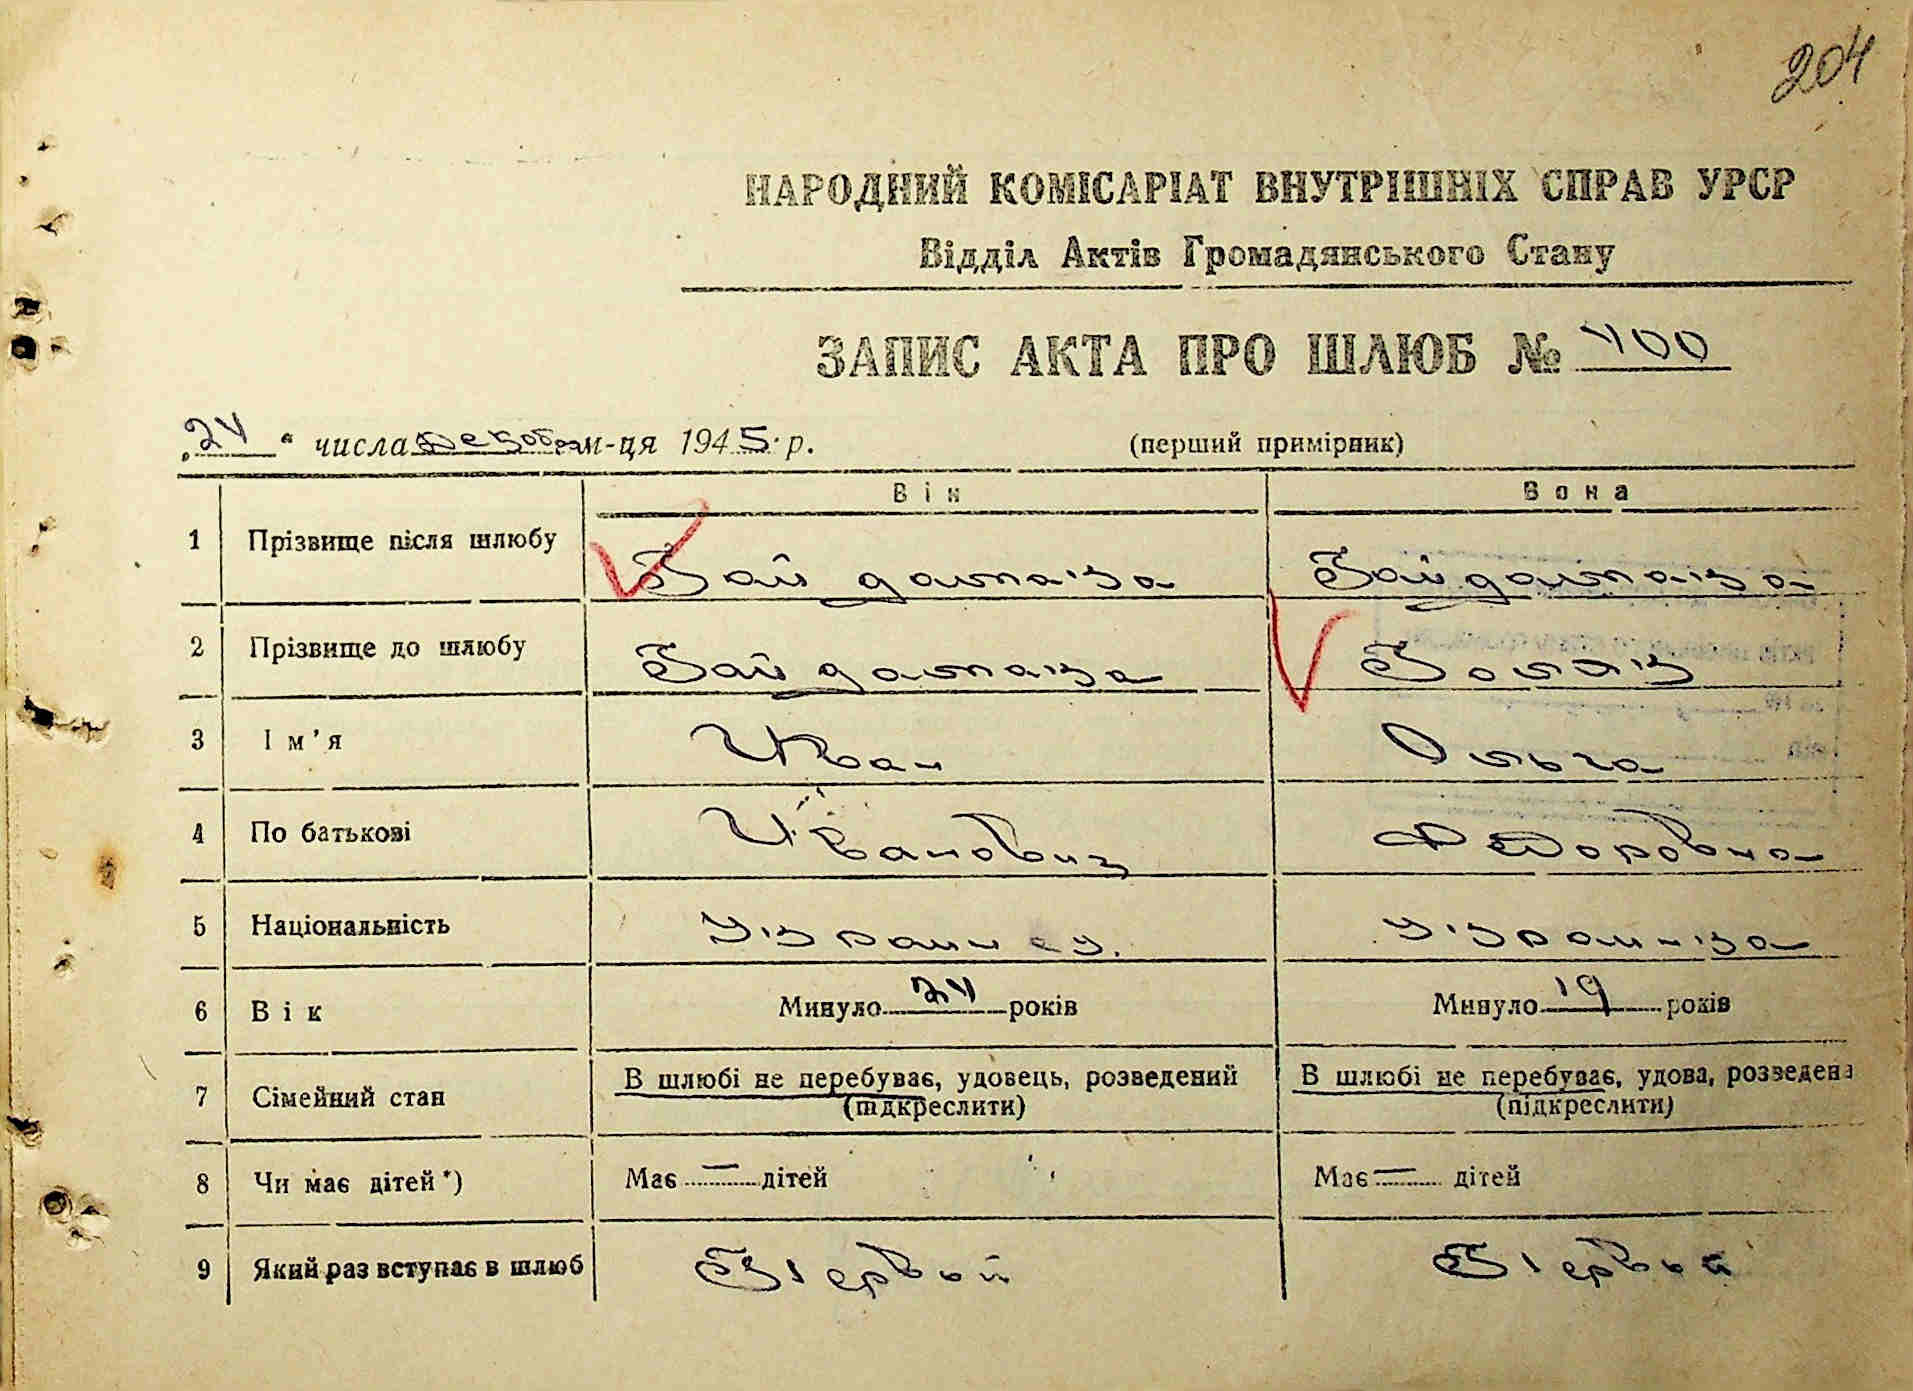 204
НАРОДНИЙ КОМІСАРІАТ ВНУТРІШНІХ СПРАВ УРСР
Відділ Актів Громадянського Стану
ЗАПИС АКТА ПРО ШЛЮБ № 400
„24“ числа декабря м-ця 1945 р. (перший примірник)
Він Вона
1 Прізвище після шлюбу Гайдамака Гайдамака
2 Прізвище до шлюбу Гайдамака
3 Ім’я Иван Ольга
4 По батькові Иванович Федоровна
5 Національність украинец. украинка
6 Вік Минуло 24 років Минуло 19 років
7 Сімейний стан В шлюбі не перебуває, удовець, розведений (підкреслити) В шлюбі не перебуває, удова, розведена (підкреслити)
8 Чи має дітей *) Має — дітей Має — дітей
9 Який раз вступає в шлюб Первый Первый